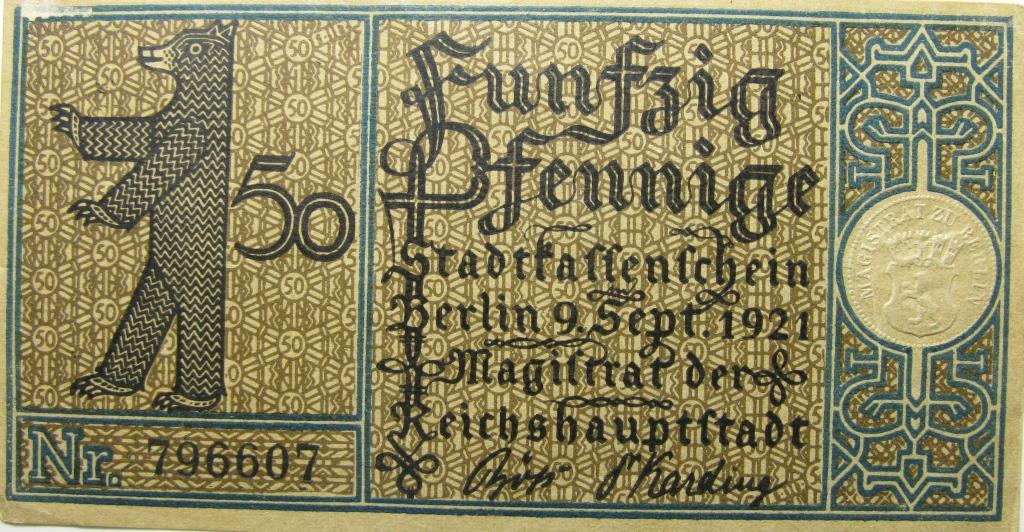 50
Nr. 796607
Funfzig
Pfennige
Stadtkassenschein
Berlin 9. Sept. 1921
Magistrat der
Reichshauptstadt
Böß Dr Karding
MAGISTRAT ZU BERLIN